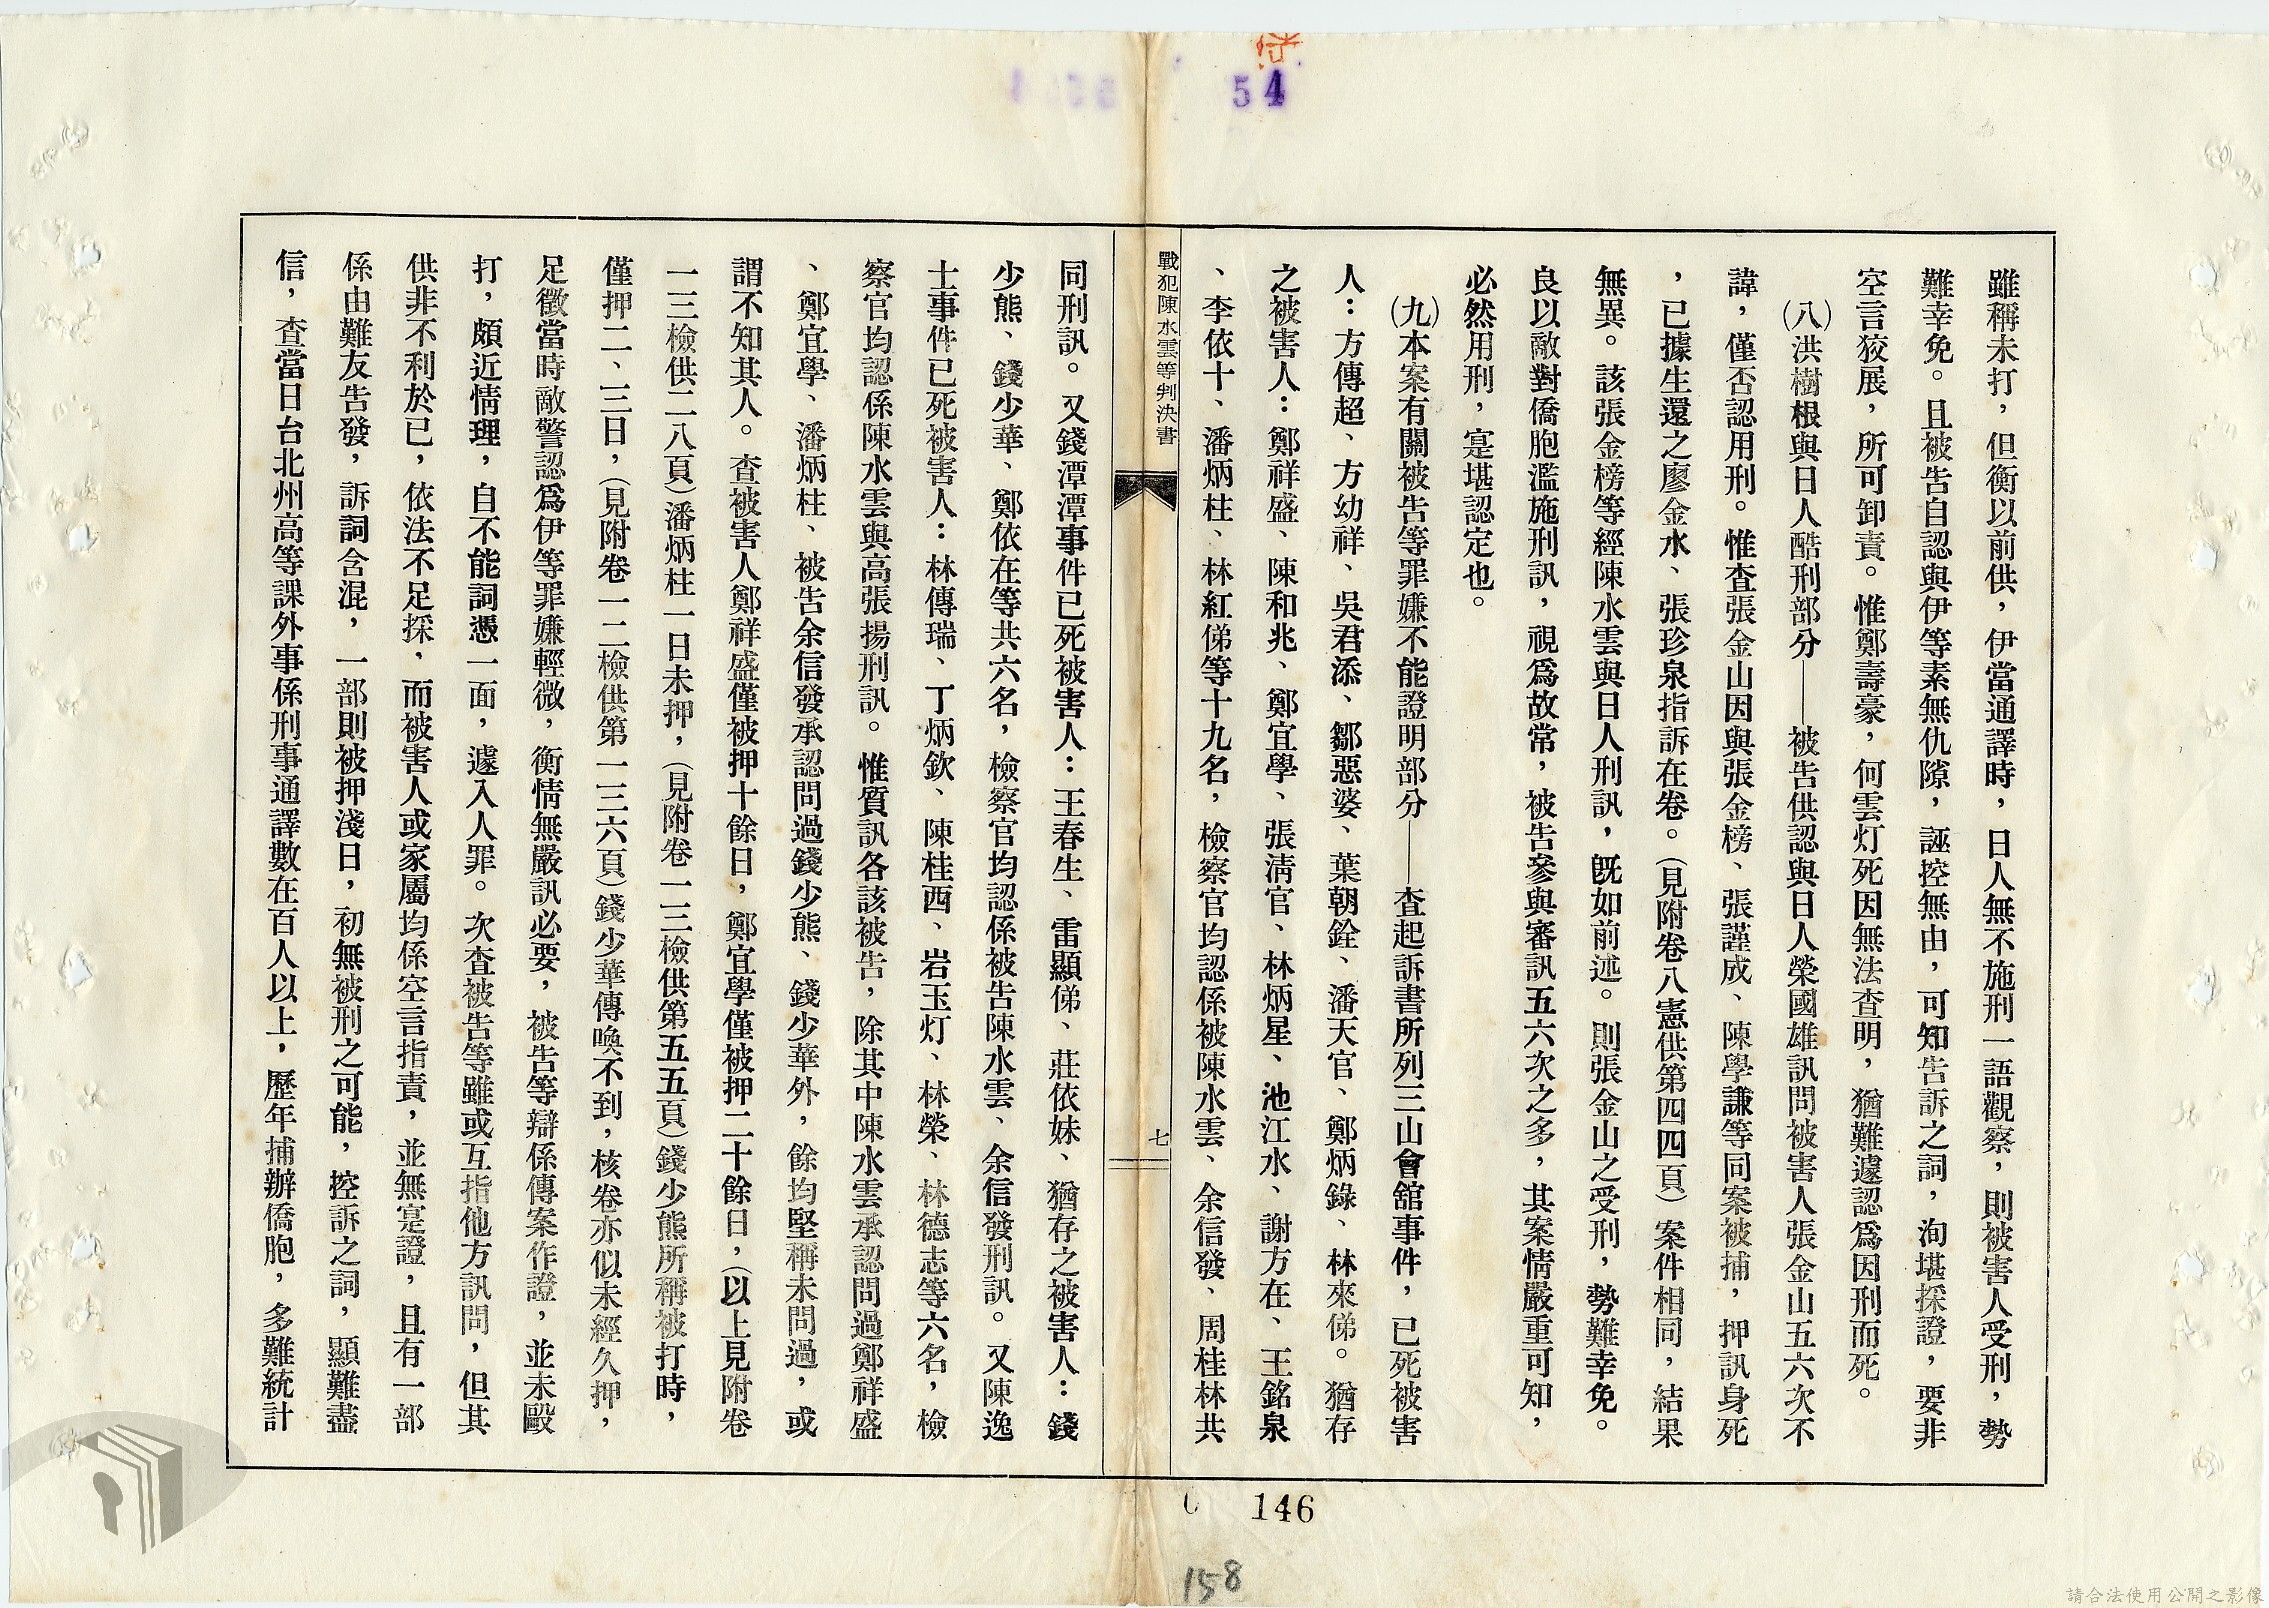 54
雖稱未打，但衡以前供，伊當通譯時，日人無不施刑一語觀察，則被害人受刑，勢
難幸免。且被告自認與伊等素無仇隙，誣控無由，可知告訴之詞，洵堪採證，要非
空言狡展，所可卸責。惟鄭壽豪，何雲灯死因無法查明，猶難遽認爲因刑而死。
㈧洪樹根與日人酷刑部分——被告供認與日人榮國雄訊問被害人張金山五六次不
諱，僅否認用刑。惟查張金山因與張金榜、張謹成、陳學謙等同案被捕，押訊身死
，已據生還之廖金水、張珍泉指訴在卷。（見附卷八憲供第四四頁）案件相同，結果
無異。該張金榜等經陳水雲與日人刑訊，旣如前述。則張金山之受刑，勢難幸免。
良以敵對僑胞濫施刑訊，視爲故常，被告參與審訊五六次之多，其案情嚴重可知，
必然用刑，寔堪認定也。
㈨本案有關被告等罪嫌不能證明部分——查起訴書所列三山會舘事件，已死被害
人：方傳超、方幼祥、吳君添、鄒惡婆、葉朝銓、潘天官、鄭炳錄、林來俤。猶存
之被害人：鄭祥盛、陳和兆、鄭宜學、張淸官、林炳星、池江水、謝方在、王銘泉
、李依十、潘炳柱、林紅俤等十九名，檢察官均認係被陳水雲、余信發、周桂林共
戰犯陳水雲等判決書
七
同刑訊。又錢潭潭事件已死被害人：王春生、雷顯俤、莊依妹、猶存之被害人：錢
少熊、錢少華、鄭依在等共六名，檢察官均認係被告陳水雲、余信發刑訊。又陳逸
士事件已死被害人：林傳瑞、丁炳欽、陳桂西、岩玉灯、林榮、林德志等六名，檢
察官均認係陳水雲與高張揚刑訊。惟質訊各該被告，除其中陳水雲承認問過鄭祥盛
、鄭宜學、潘炳柱、被告余信發承認問過錢少熊、錢少華外，餘均堅稱未問過，或
謂不知其人。查被害人鄭祥盛僅被押十餘日，鄭宜學僅被押二十餘日，（以上見附卷
一三檢供二八頁）潘炳柱一日未押，（見附卷一三檢供第五五頁）錢少熊所稱被打時，
僅押二、三日，（見附卷一二檢供第一三六頁）錢少華傳喚不到，核卷亦似未經久押，
足徵當時敵警認爲伊等罪嫌輕微，衡情無嚴訊必要，被告等辯係傳案作證，並未毆
打，頗近情理，自不能詞憑一面，遽入人罪。次查被告等雖或互指他方訊問，但其
供非不利於已，依法不足採，而被害人或家屬均係空言指責，並無寔證，且有一部
係由難友告發，訴詞含混，一部則被押淺日，初無被刑之可能，控訴之詞，顯難盡
信，查當日台北州高等課外事係刑事通譯數在百人以上，歷年捕辦僑胞，多難統計
146
158
請合法使用公開之影像